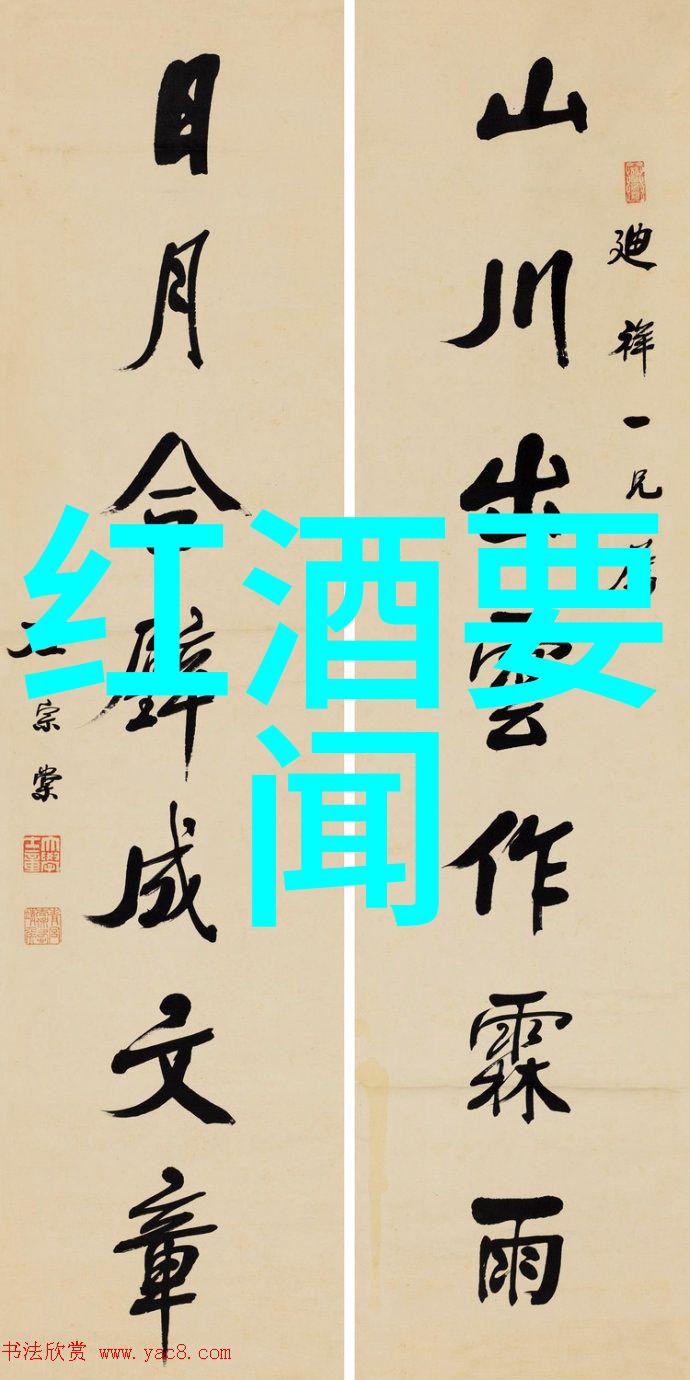 山川出雲作霖雨
廸祥一兄
日月合璧成文章
左宗棠
红酒要
闻
书法欣赏 www.yac8.com